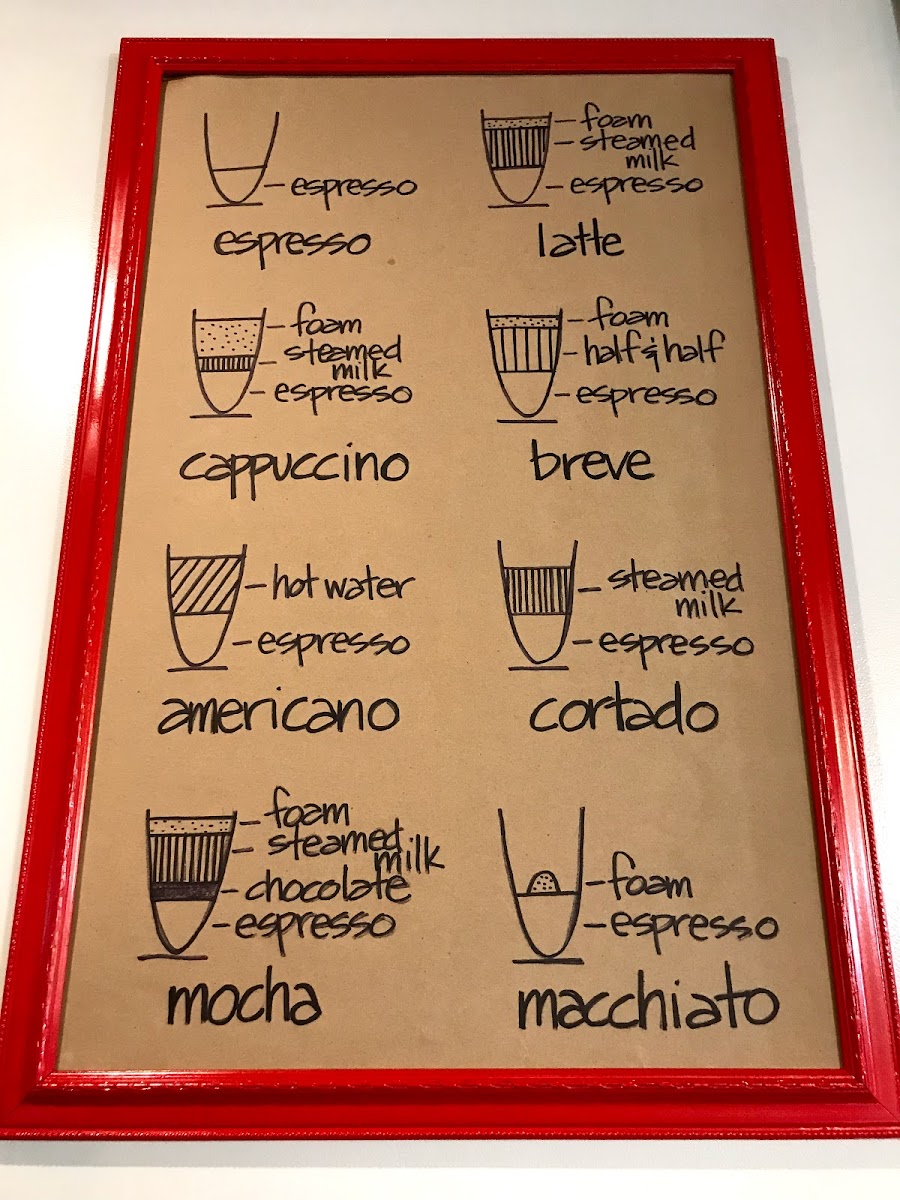 espresso
espresso
foam
steamed
milk
espresso
latte
foam
steamed
milk
espresso
cappuccino
foam
half & half
espresso
breve
hot water
espresso
americano
steamed
milk
espresso
cortado
foam
steamed
milk
chocolate
espresso
mocha
foam
espresso
macchiato